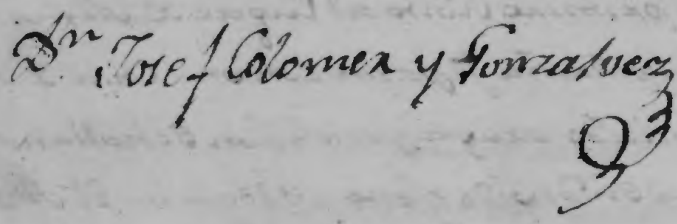 Dn Josef Colomer y Gonzalvez